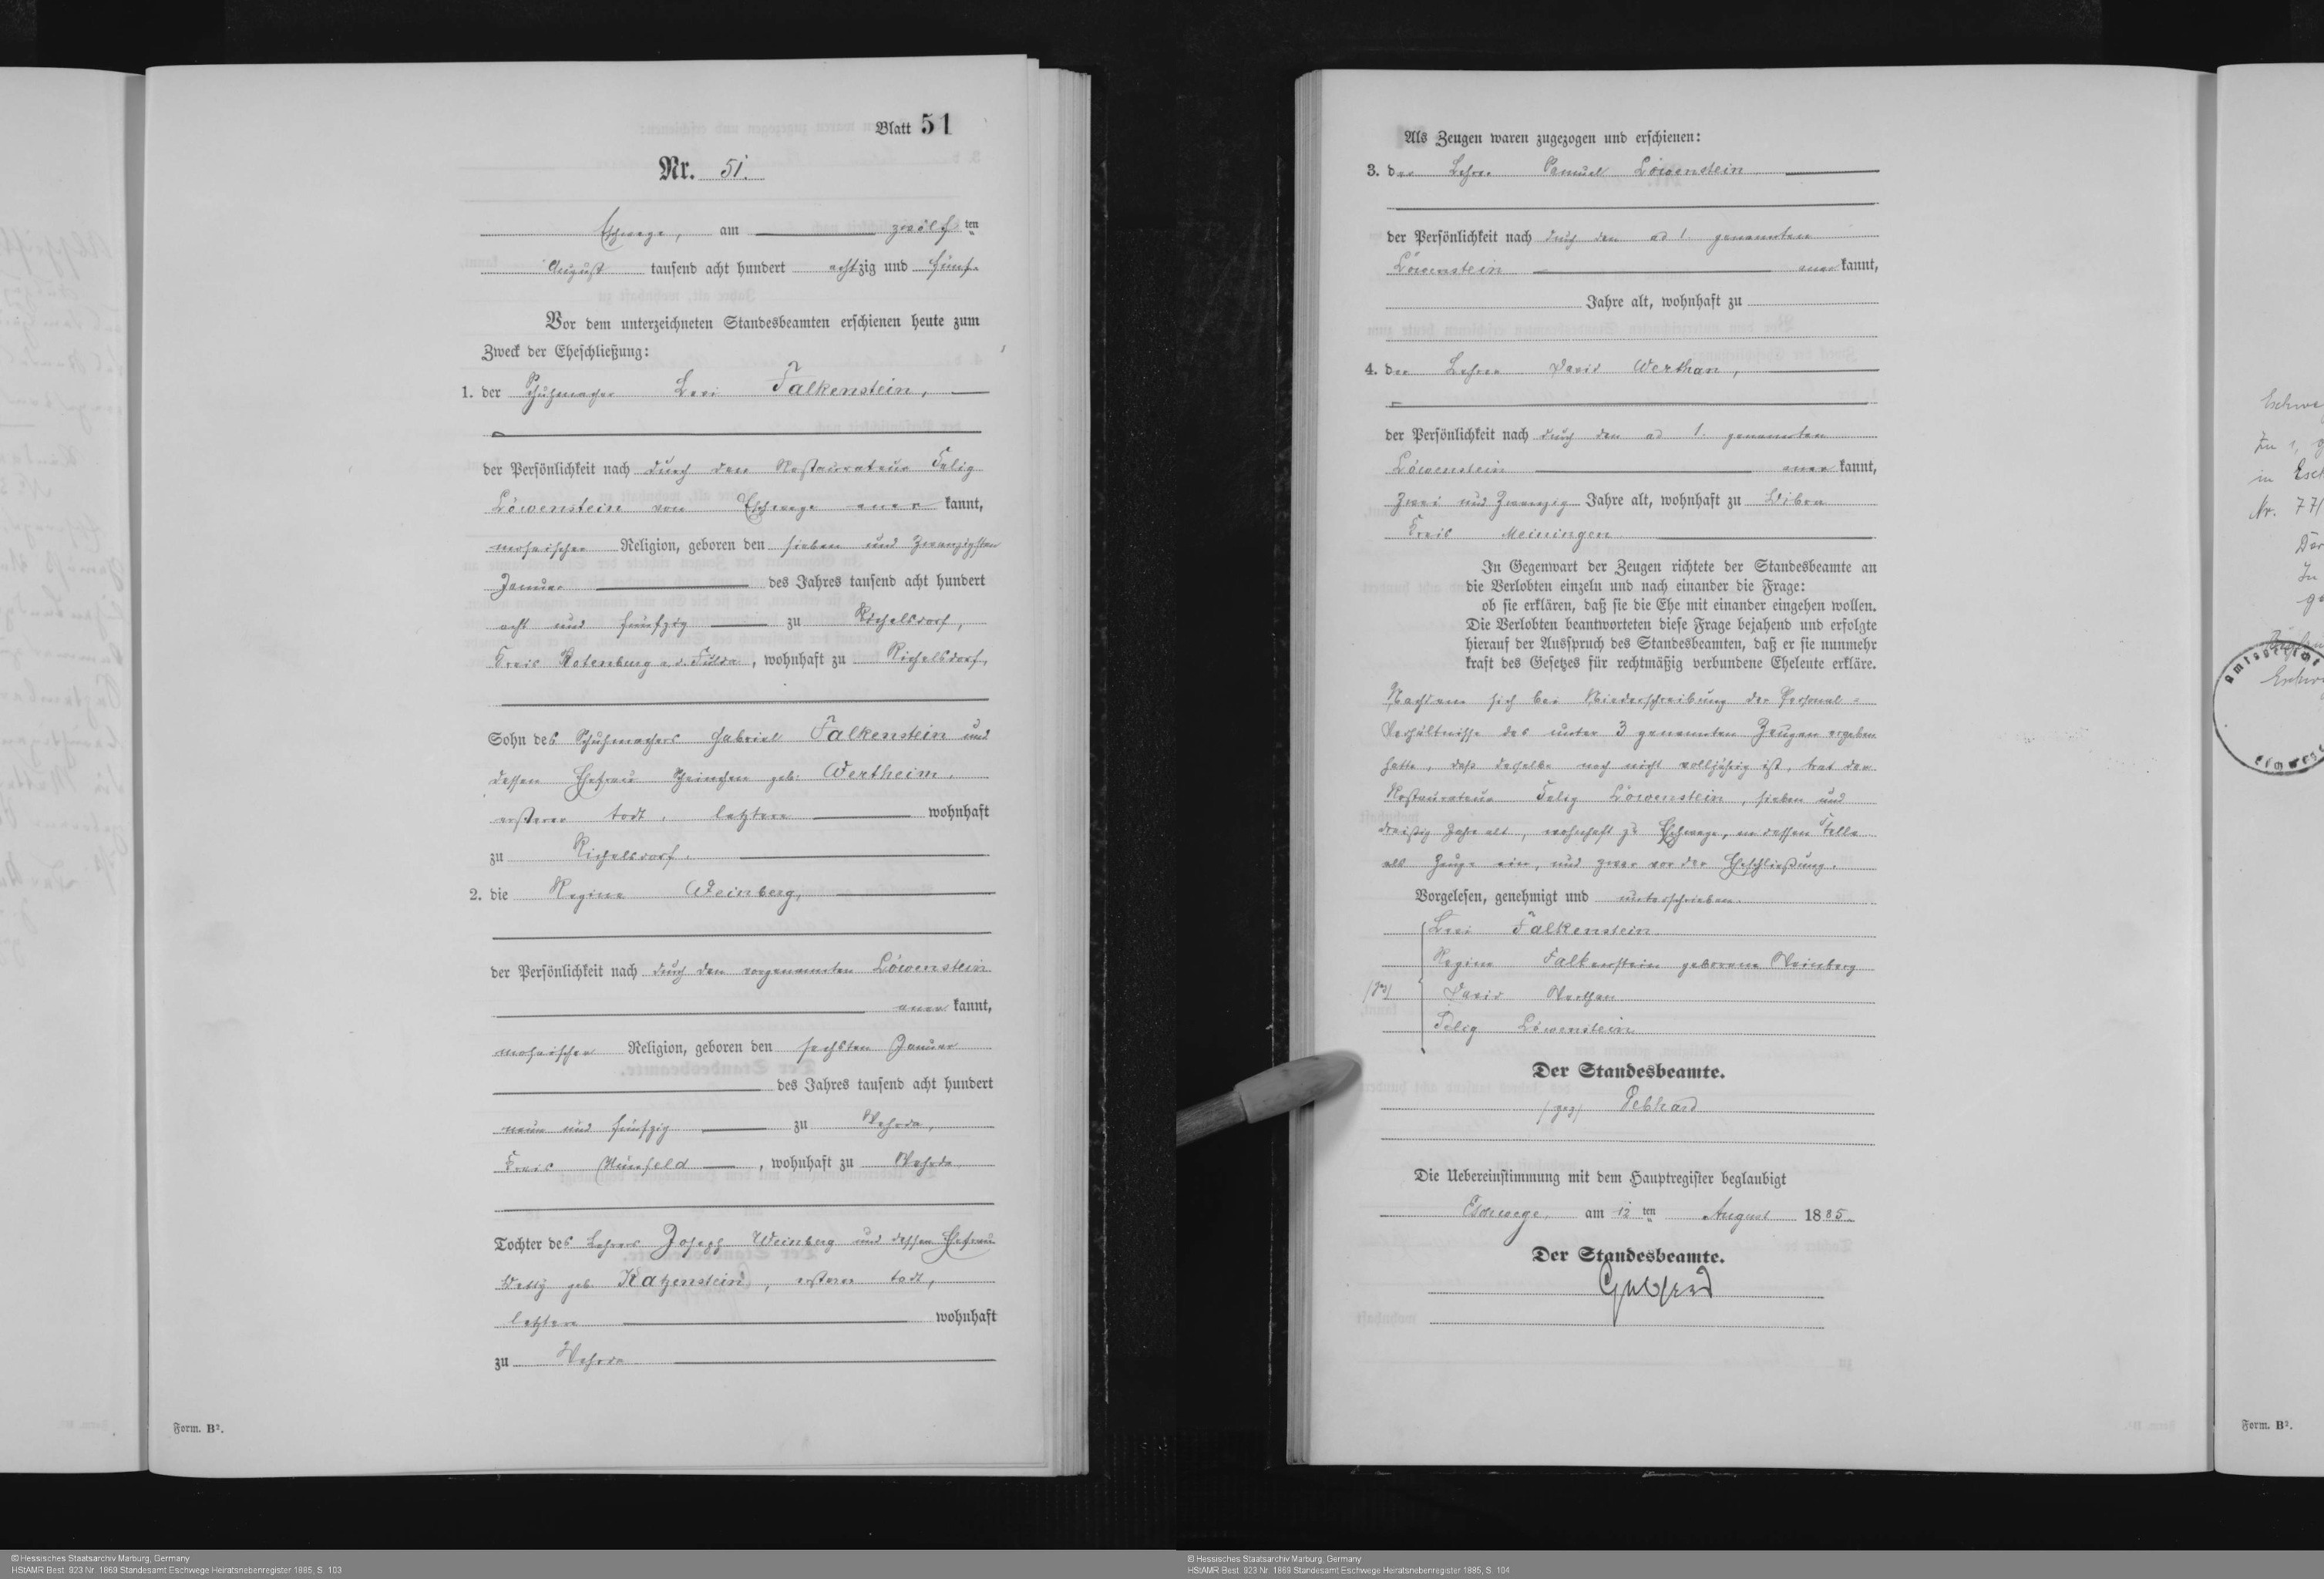 Blatt 51
Nr. 51.
Eschwege, am zwölf ten
August tausend acht hundert achtzig und fünf
Vor dem unterzeichneten Standesbeamten erschienen heute zum
Zweck der Eheschließung:
1. der Schuhmacher Levi Falkenstein,
der Persönlichkeit nach durch den Restaurateur Selig
Löwenstein von Eschwege aner kannt,
mosaischer Religion, geboren den sieben und zwanzigsten
Januar des Jahres tausend acht hundert
acht und fünfzig zu Richelsdorf,
Kreis Rotenburg a. d. Fulda, wohnhaft zu Richelsdorf,
Sohn des Schuhmachers Gabriel Falkenstein und
dessen Ehefrau geb. Wertheim,
ersterer todt, letztere wohnhaft
zu Richelsdorf.
2. die Regina Weinberg,
der Persönlichkeit nach durch den vorgenannten Löwenstein
aner kannt,
mosaischer Religion, geboren den sechsten Januar
des Jahres tausend acht hundert
neun und fünfzig zu Wehrda,
Kreis Hünfeld, wohnhaft zu Wehrda
Tochter des Lehrers Joseph Weinberg und dessen Ehefrau
geb. Katzenstein, ersterer todt,
letztere wohnhaft
zu Wehrda
Form. B².
Als Zeugen waren zugezogen und erschienen:
3. der Lehrer Samuel Löwenstein
der Persönlichkeit nach durch den ad 1. genannten
Löwenstein aner kannt,
Jahre alt, wohnhaft zu
4. der Lehrer David Werthan,
der Persönlichkeit nach durch den ad 1. genannten
Löwenstein aner kannt,
zwei und zwanzig Jahre alt, wohnhaft zu Bibra
Kreis Meiningen
In Gegenwart der Zeugen richtete der Standesbeamte an
die Verlobten einzeln und nach einander die Frage:
ob sie erklären, daß sie die Ehe mit einander eingehen wollen.
Die Verlobten beantworteten diese Frage bejahend und erfolgte
hierauf der Ausspruch des Standesbeamten, daß er sie nunmehr
kraft des Gesetzes für rechtmäßig verbundene Eheleute erkläre.
Nachdem sich bei Niederschreibung der Personal-
Verhältnisse des unter 3 genannten Zeugen ergeben
hatte, daß derselbe noch nicht volljährig ist, trat der
Restaurateur Selig Löwenstein, sieben und
dreißig Jahre alt, wohnhaft zu Eschwege, an dessen Stelle
als Zeuge ein, und zwar vor der Eheschließung.
Vorgelesen, genehmigt und unterschrieben.
Levi Falkenstein
Regina Falkenstein geborene Weinberg
(gez) David Werthan
Selig Löwenstein
Der Standesbeamte.
(gez) Gebhard
Die Uebereinstimmung mit dem Hauptregister beglaubigt
Eschwege, am 12 ten August 1885.
Der Standesbeamte.
Gebhard
Form. B².
© Hessisches Staatsarchiv Marburg, Germany
HStAMR Best. 923 Nr. 1869 Standesamt Eschwege Heiratsnebenregister 1885, S. 103
© Hessisches Staatsarchiv Marburg, Germany
HStAMR Best. 923 Nr. 1869 Standesamt Eschwege Heiratsnebenregister 1885, S. 104